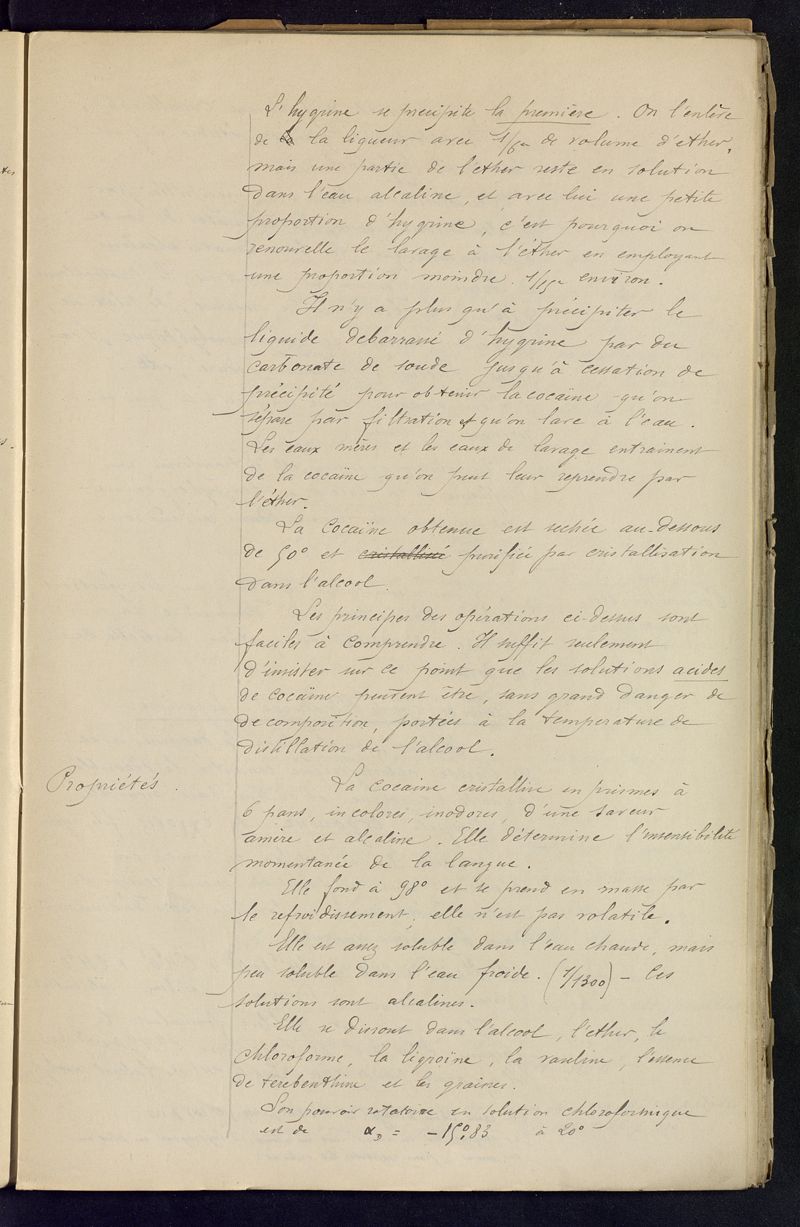 L'hygrine se précipite la première. On l'enlève
de la la liqueur avec 1/6e de volume d'ether,
mais une partie de l'ether reste en solution
dans l'eau alcaline, et avec lui une petite
proportion d'hygrine, c'est pourquoi on
renouvelle le lavage à l'éther en employant
une proportion moindre. 1/15e environ.
Il n'y a plus qu'à précipiter le
liquide debarrassé d'hygrine par du
carbonate de soude jusqu'à cessation de
précipité pour obtenir la cocaïne qu'on
sépare par filtration et qu'on lave à l'eau.
Les eaux mères et les eaux de lavage entrainent
de la cocaïne qu'on peut leur reprendre par
l'éther.
La Cocaïne obtenue est sechée au-dessous
de 50° et cristallisée purifiée par cristallisation
dans l'alcool.
Les principes des opérations ci-dessus sont
faciles à comprendre. Il suffit seulement
d'insister sur ce point que les solutions acides
de cocaïne peuvent être, sans grand danger de
decomposition, portées à la température de
distillation de l'alcool.
Propriétés.
La cocaine cristallise en prismes à
6 pans, incolores, inodores, d'une saveur
amère et alcaline. Elle détermine l'insensibilité
momentanée de la langue.
Elle fond à 98° et se prend en masse par
le refroidissement, elle n'est pas volatile.
Elle est assez soluble dans l'eau chaude, mais
peu soluble dans l'eau froide. (1/1300) - Ces
solutions sont alcalines.
Elle se dissout dans l'alcool, l'ether, le
chloroforme, la ligroïne, la vaseline, l'essence
de terebenthine et les graisses.
Son pouvoir rotatoire en solution chloroformique
est de αD = -15°,83 à 20°